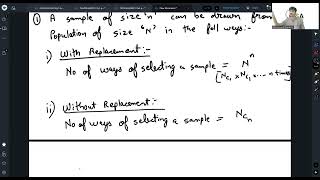 ① A sample of size 'n' can be drawn from
Population of size 'N' in the foll ways:-
i) With Replacement:-
No of ways of selecting a sample = Nⁿ
[Nc₁ × Nc₁ ..... n times]
ii) Without Replacement:-
No of ways of selecting a sample = Ncₙ